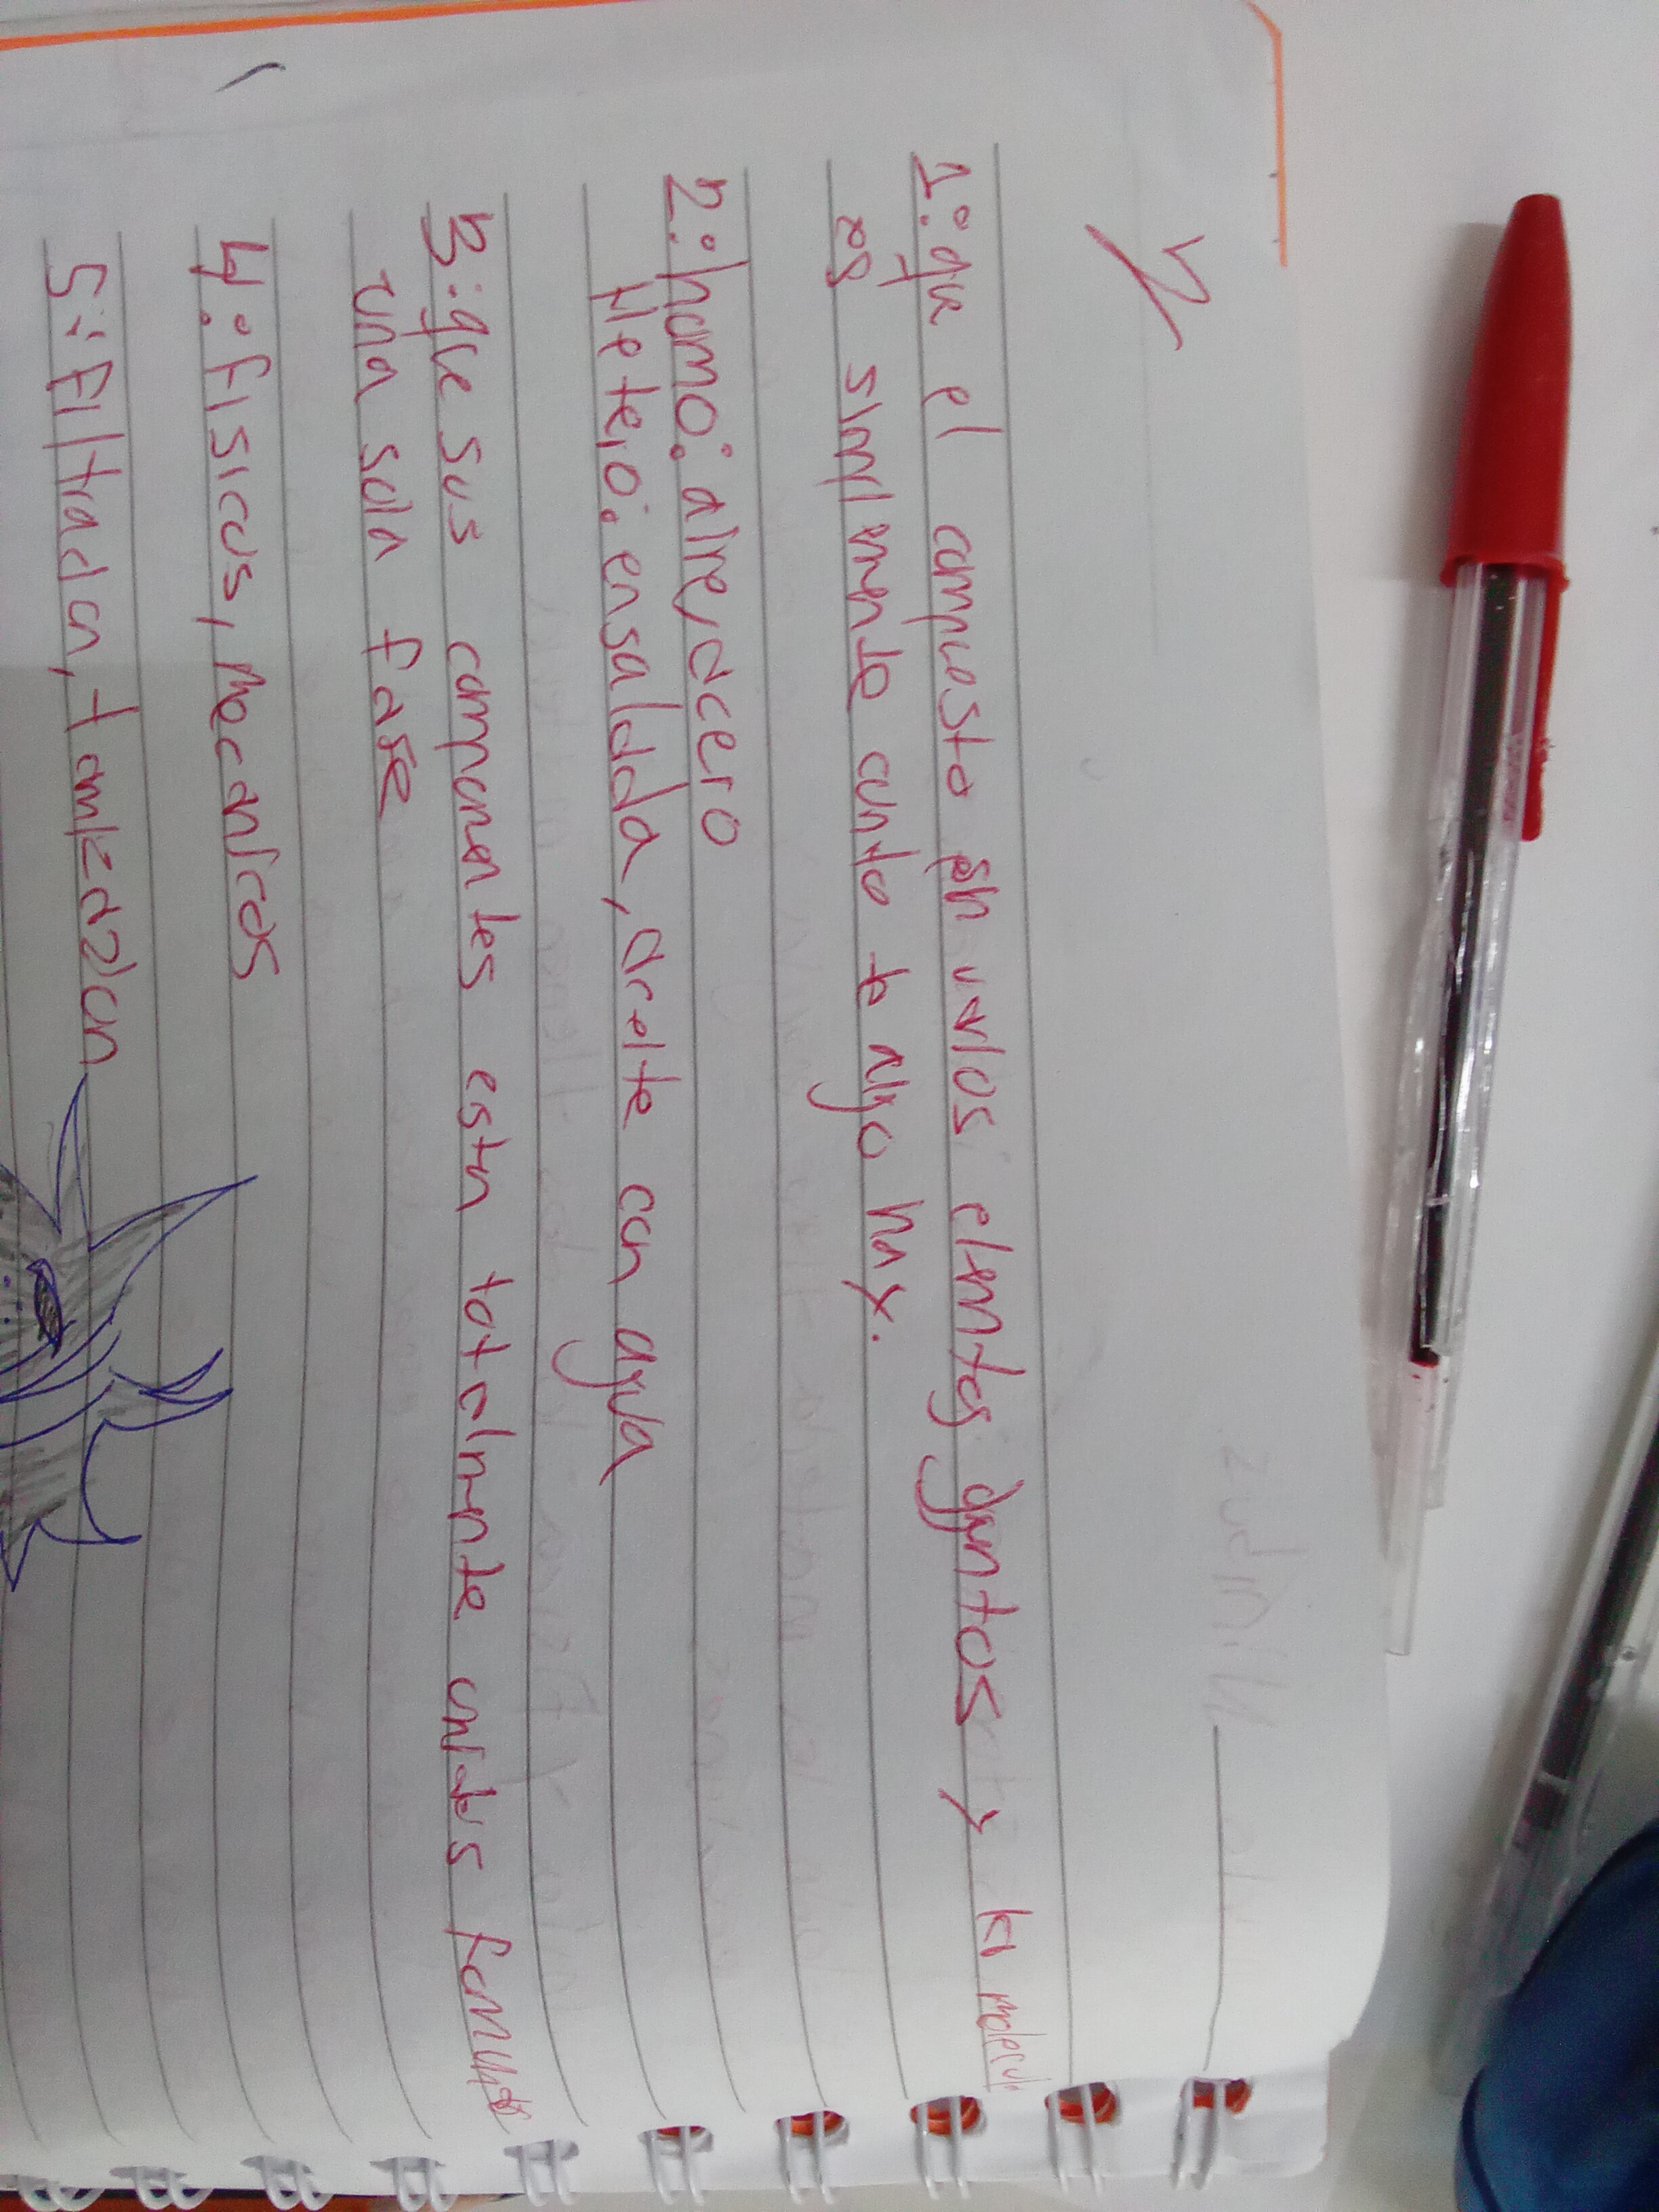 2
1: que el compuesto sn varios elemntos gyntos y la molecula
es simplemente cunto te algo hay.
2: homo: aire, acero
Hetero: ensalada, aceite con agua
3: que sus componentes estn totalmente unidos formando
una sola fase
4: fisicos, mecanicos
5: Filtradcn, tamizazion